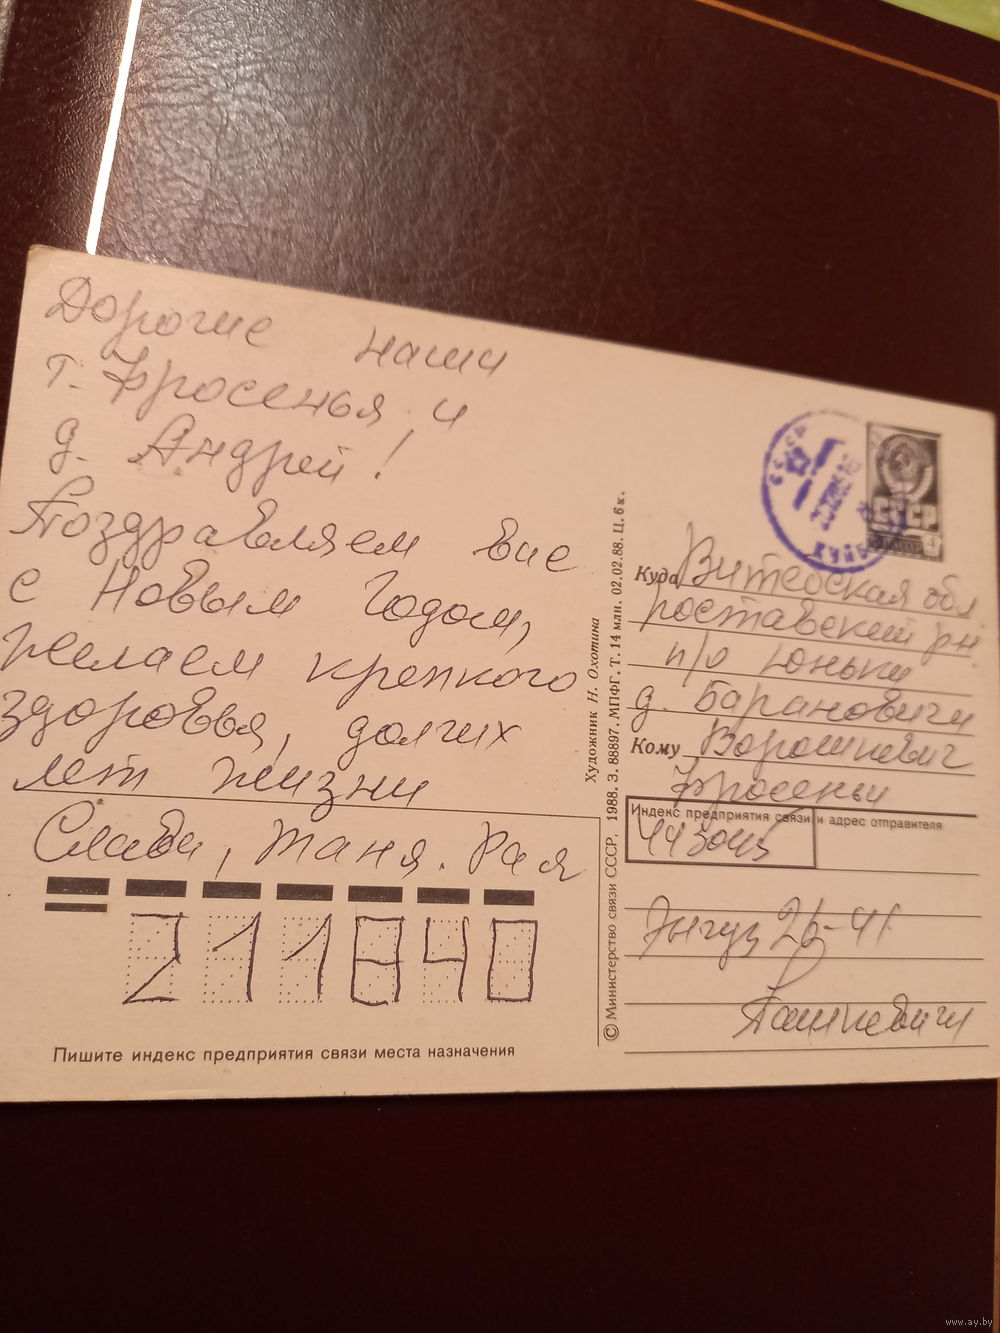 Дорогие наши
т. Фросенья и
д. Андрей!
Поздравляем вас
с Новым Годом,
желаем крепкого
здоровья, долгих
лет жизни
Слава, Таня. Рая
211840
Пишите индекс предприятия связи места назначения
© Министерство связи СССР. 1988. З. 88897. МПФГ. Т. 14 млн. 02.02.88. Ц. 6 к.
Художник Н. Охотина
СССР
СССР
КУЙБ
Куда Витебская обл
Поставский рн.
п/о Юньки
д. Барановичи
Кому Ворошкевич
Фросеньи
Индекс предприятия связи и адрес отправителя
443045
26-41
Пашкевичи
www.ay.by